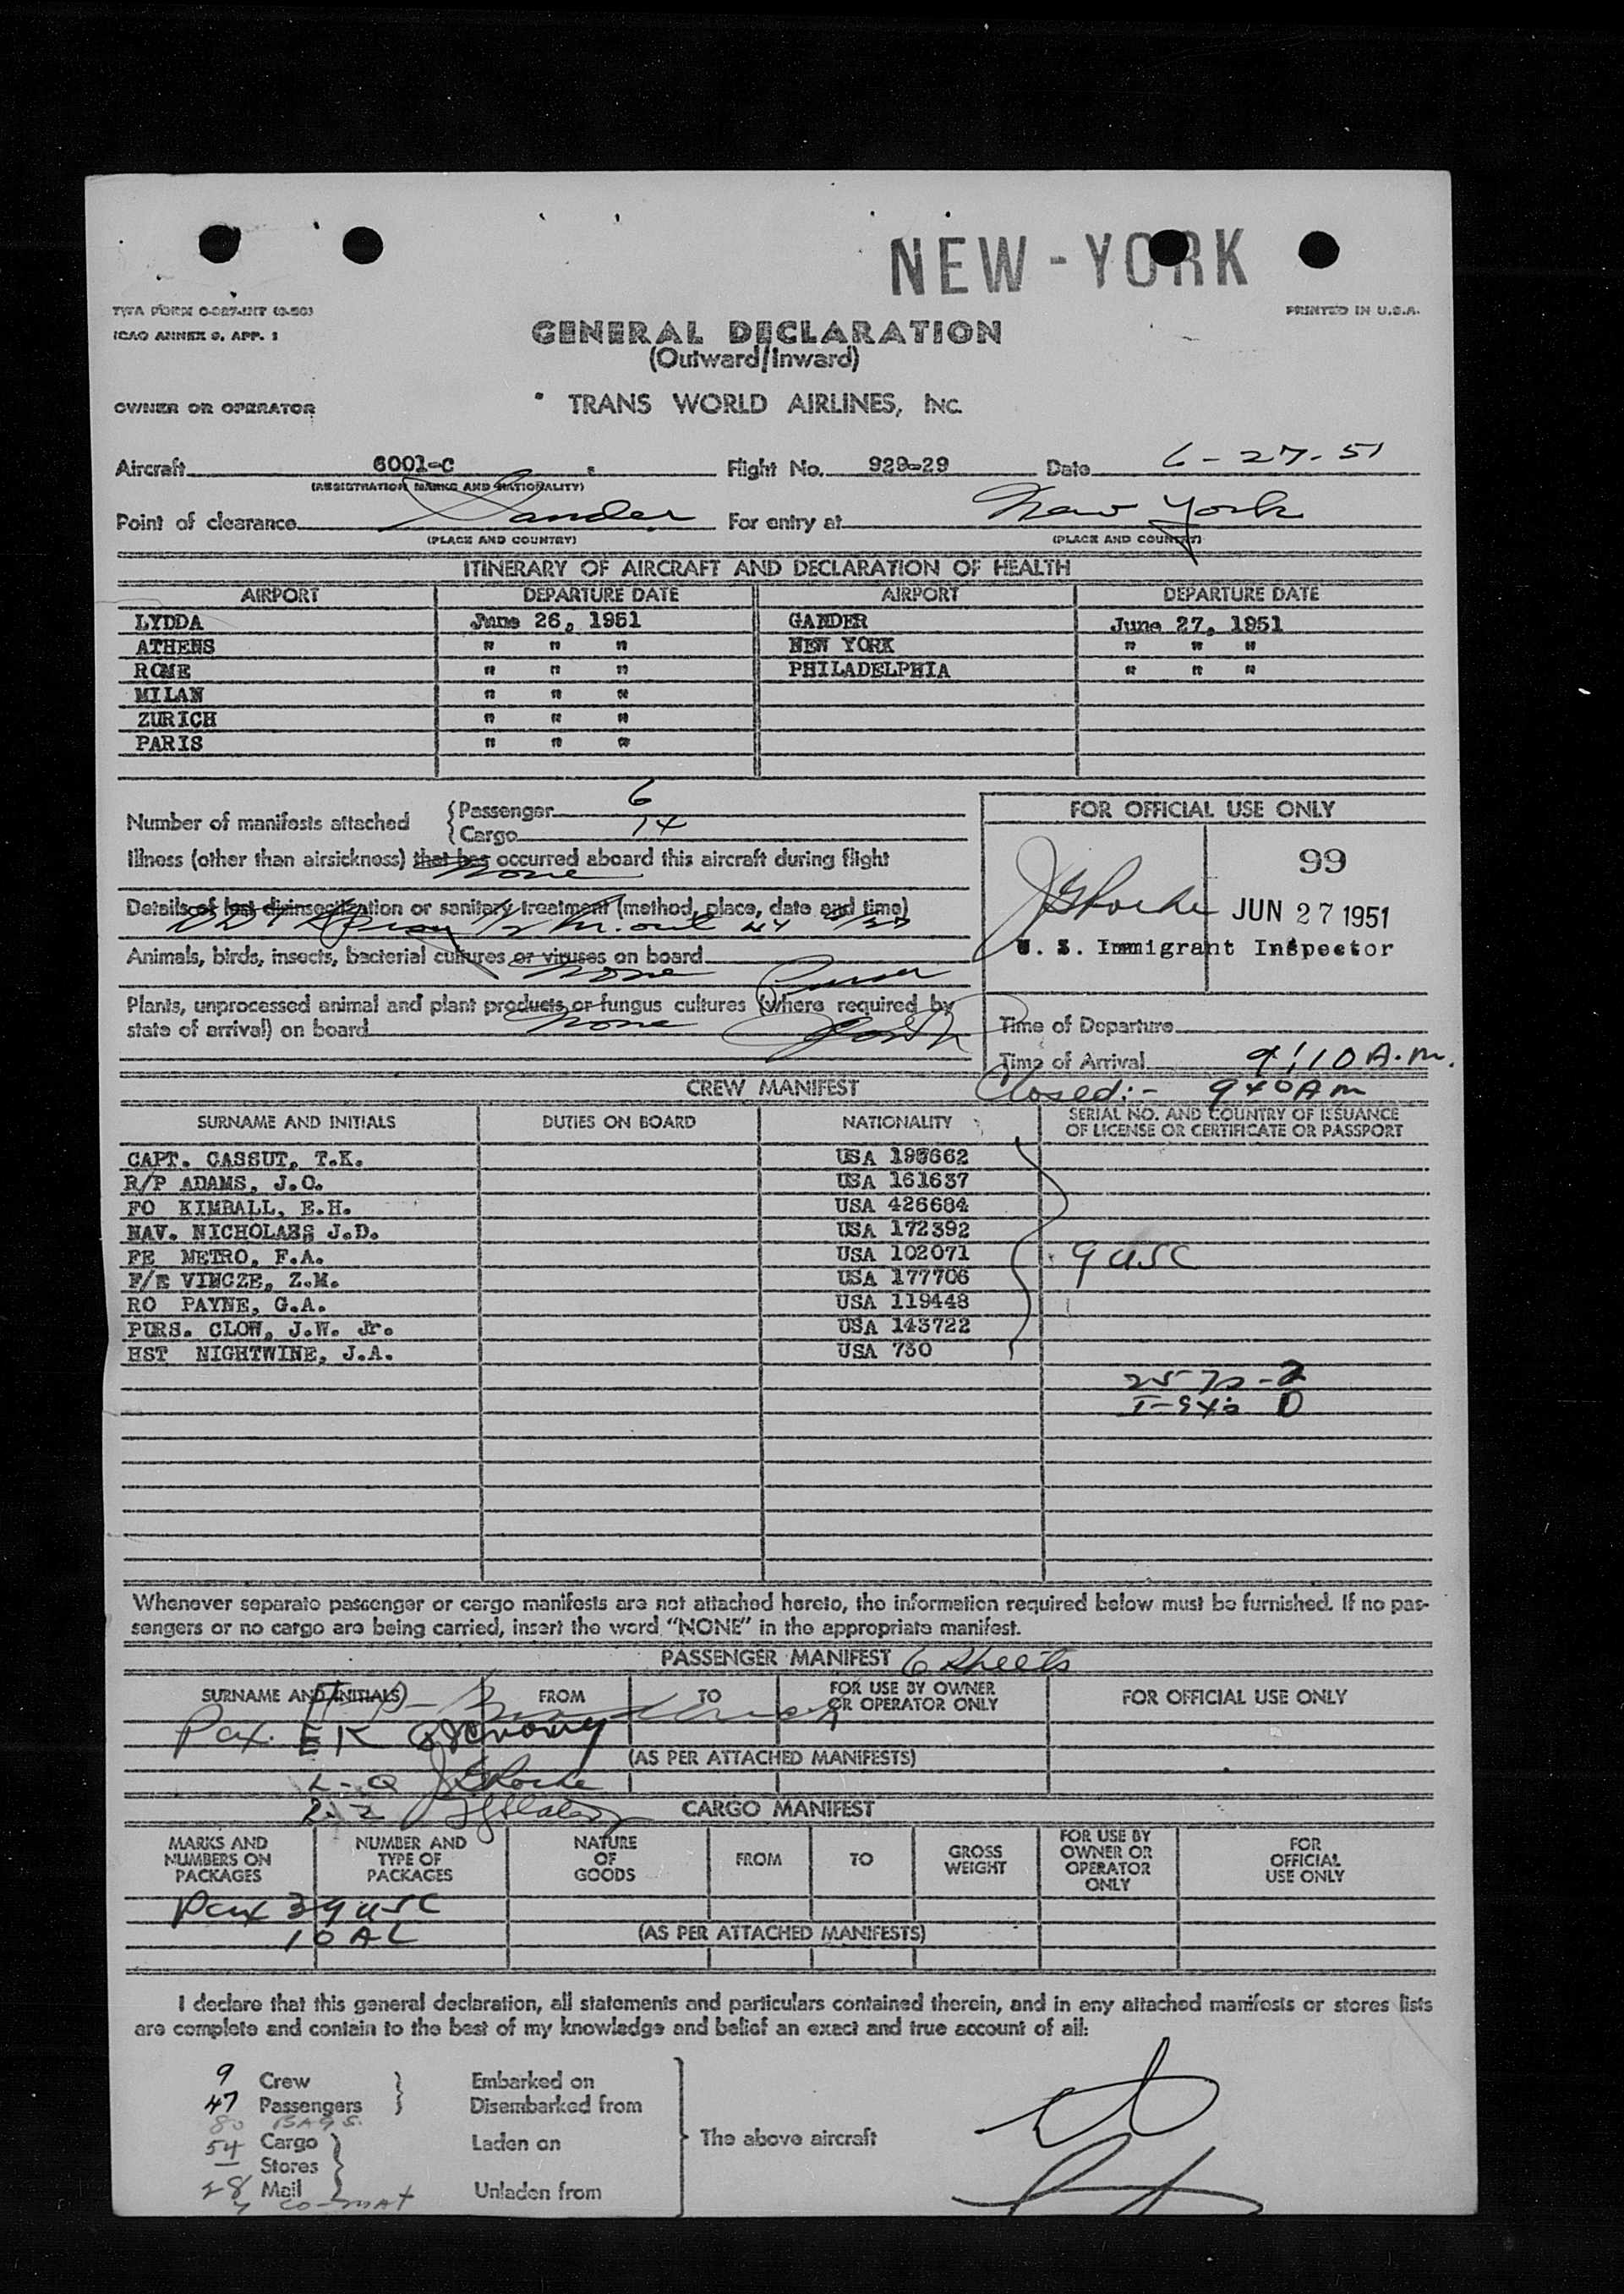 NEW-YORK
TWA FORM
ICAO ANNEX 9, APP. 1
PRINTED IN U.S.A.
GENERAL DECLARATION
(Outward/Inward)
OWNER OR OPERATOR
TRANS WORLD AIRLINES, INC.
Aircraft 6001-C Flight No. 929-29 Date 6-27-51
(REGISTRATION MARKS AND NATIONALITY)
Point of clearance Gander For entry at New York
(PLACE AND COUNTRY) (PLACE AND COUNTRY)
ITINERARY OF AIRCRAFT AND DECLARATION OF HEALTH
AIRPORT DEPARTURE DATE AIRPORT DEPARTURE DATE
LYDDA June 26, 1951 GANDER June 27, 1951
ATHENS " " " NEW YORK " " "
ROME " " " PHILADELPHIA " " "
MILAN " " "
ZURICH " " "
PARIS " " "
Number of manifests attached
Passenger 6
Cargo 14
Illness (other than airsickness) that has occurred aboard this aircraft during flight
None
Details of last disinsectization or sanitary treatment (method, place, date and time)
Animals, birds, insects, bacterial cultures or viruses on board
None
Plants, unprocessed animal and plant products or fungus cultures (where required by
state of arrival) on board None
FOR OFFICIAL USE ONLY
99
JGRocke JUN 27 1951
U. S. Immigrant Inspector
Time of Departure
Time of Arrival 9:10 A.M.
Closed:- 940 AM
CREW MANIFEST
SURNAME AND INITIALS DUTIES ON BOARD NATIONALITY SERIAL NO. AND COUNTRY OF ISSUANCE
OF LICENSE OR CERTIFICATE OR PASSPORT
CAPT. CASSUT, T.K. USA
R/P ADAMS, J.O. USA 161637
FO KIMBALL, E.H. USA 426684
NAV. J.D. USA 172392
FE METRO, F.A. USA 102071
F/E VINCZE, Z.M. USA 177706
RO PAYNE, G.A. USA 119448
PURS. CLOW, J.W. Jr. USA 143722
HST NIGHTWINE, J.A. USA 730
9 USC
Whenever separate passenger or cargo manifests are not attached hereto, the information required below must be furnished. If no pas-
sengers or no cargo are being carried, insert the word "NONE" in the appropriate manifest.
PASSENGER MANIFEST 6 Sheets
SURNAME AND INITIALS FROM TO FOR USE BY OWNER
OR OPERATOR ONLY FOR OFFICIAL USE ONLY
Pax. E K
(AS PER ATTACHED MANIFESTS)
L-Q JGRocke
R-Z
CARGO MANIFEST
MARKS AND
NUMBERS ON
PACKAGES
NUMBER AND
TYPE OF
PACKAGES
NATURE
OF
GOODS
FROM
TO
GROSS
WEIGHT
FOR USE BY
OWNER OR
OPERATOR
ONLY
FOR
OFFICIAL
USE ONLY
Pax 39 USC
10 AL
(AS PER ATTACHED MANIFESTS)
I declare that this general declaration, all statements and particulars contained therein, and in any attached manifests or stores lists
are complete and contain to the best of my knowledge and belief an exact and true account of all:
9 Crew Embarked on
47 Passengers Disembarked from
80 BAGS.
54 Cargo Laden on The above aircraft
Stores
28 Mail Unladen from
CO-MAT